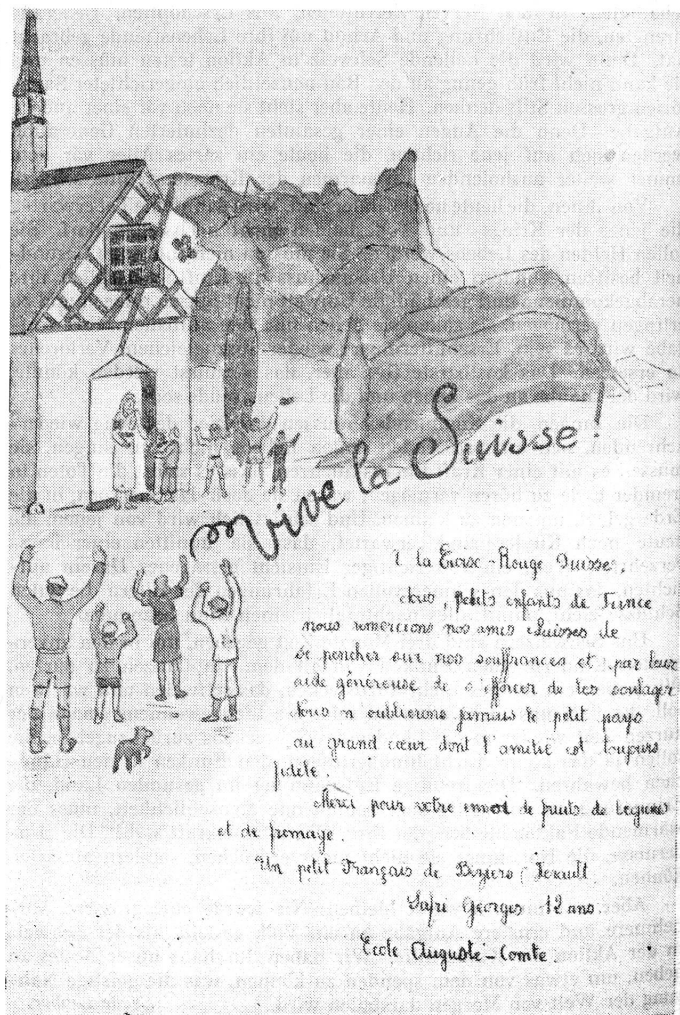 Vive la Suisse!
A la Croix-Rouge Suisse,
Nous, petits enfants de France
nous remercions nos amis Suisses de
se pencher sur nos souffrances et par leur
aide généreuse de s'efforcer de les soulager
Nous n'oublierons jamais le petit pays
au grand cœur dont l'amitié est toujours
fidèle.
Merci pour votre envoi de fruits de légumes
et de fromage.
Un petit Français de Béziers (Hérault
Georges 12 ans
École Auguste-Comte